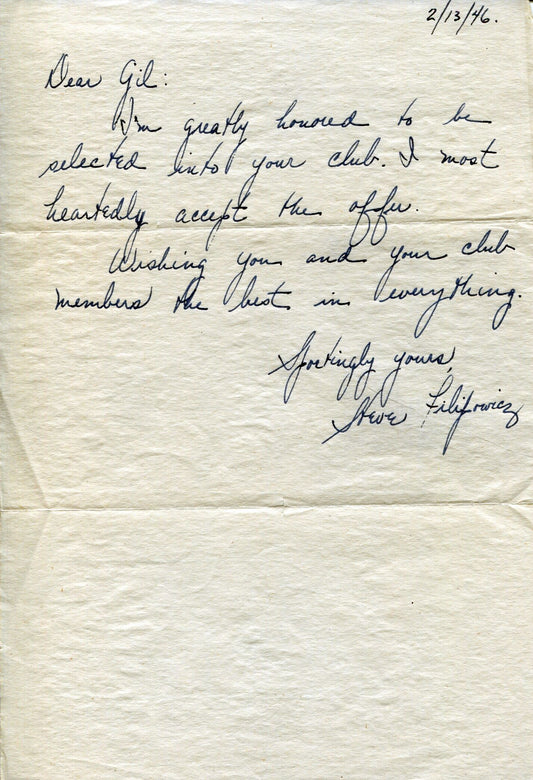 2/13/46.
Dear Gil:
I'm greatly honored to be
selected into your club. I most
heartedly accept the offer.
Wishing you and your club
members the best in everything.
Sportingly yours,
Steve Filipowicz